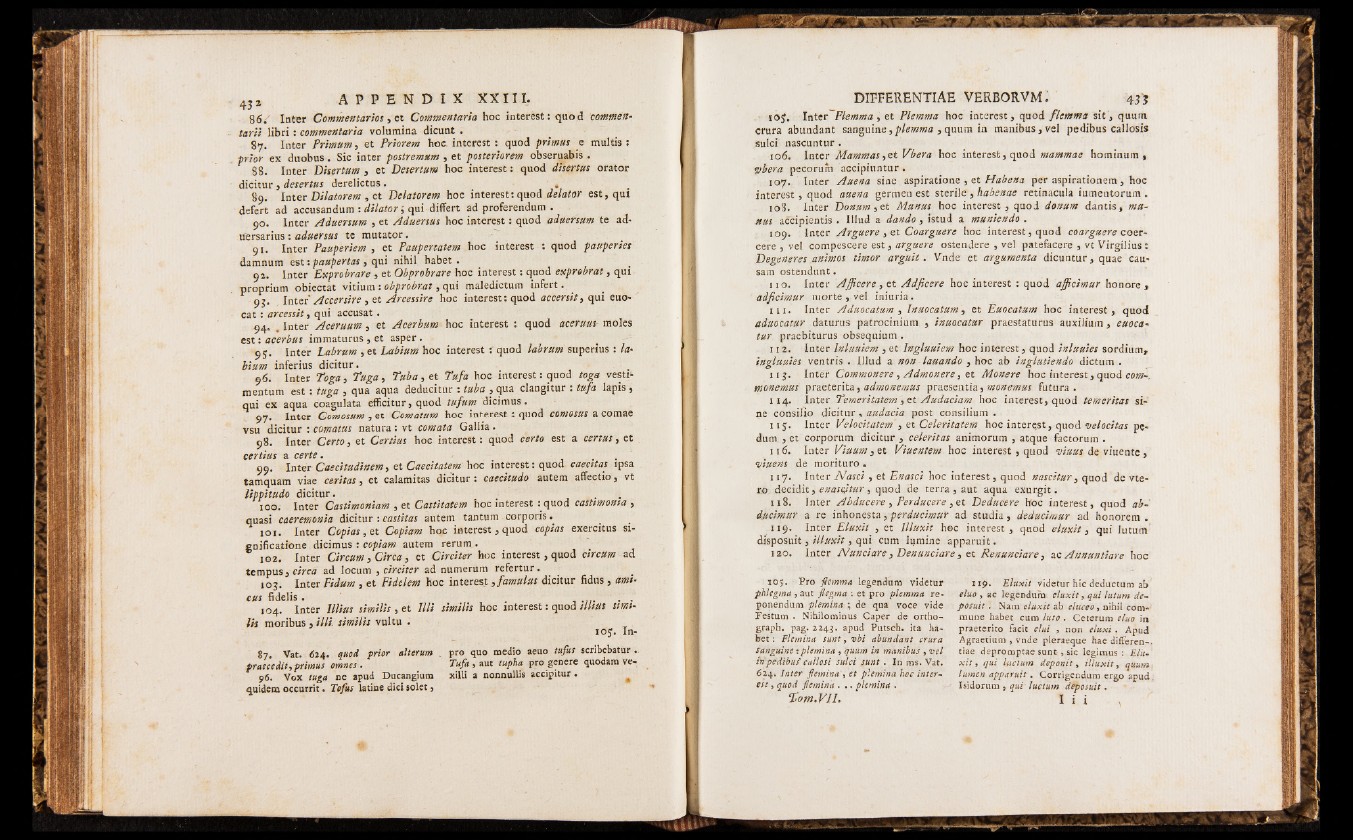 432 APPENDIX XXIII.
86. Inter Commentarios, et Commentaria hoc interest: quod commen-
tarii libri: commentaria volumina dicunt.
87. Inter Primum, et Priorem hoc interest: quod primus e multis:
prior ex duobus. Sic inter postremum, et posteriorem obseruabis.
88. Inter Disertum, et Desertum hoc interest: quod disertus orator
dicitur, desertus derelictus.
89. Inter Dilatorem, et Delatorem hoc interest: quod delator est, qui
defert ad accusandum: dilator; qui differt ad proferendum.
90. Inter Aduersum, et Aduersus hoc interest: quod aduersum te ad-
uersarius: aduersus te mutator.
91. Inter Pauperiem, et Paupertatem hoc interest: quod pauperies
damnum est: paupertas, qui nihil habet.
92. Inter Exprobrare, et Obprobrare hoc interest: quod exprobrat, qui
proprium obiectat vitium: obprobrat, qui maledictum infert.
93. Inter Accersire, et Arcessire hoc interest: quod accersit, qui euo-
cat: arcessit, qui accusat.
94. Inter Aceruum, et Acerbum hoc interest: quod aceruus moles
est: acerbus immaturus, et asper.
95. Inter Labrum, et Labium hoc interest: quod labrum superius: la-
bium inferius dicitur.
96. Inter Toga, Tuga, Tuba, et Tufa hoc interest: quod toga vesti-
mentum est: tuga, qua aqua deducitur: tuba, qua clangitur: tufa lapis,
qui ex aqua coagulata efficitur, quod tufum dicimus.
97. Inter Comosum, et Comatum hoc interest: quod comosus a comae
vsu dicitur: comatus natura: vt comata Gallia.
98. Inter Certo, et Certius hoc interest: quod certo est a certus, et
certius a certe.
99. Inter Caecitudinem, et Caecitatem hoc interest: quod caecitas ipsa
tamquam viae ceritas, et calamitas dicitur: caecitudo autem affectio, vt
lippitudo dicitur.
100. Inter Castimoniam, et Castitatem hoc interest: quod castimonia,
quasi caeremonia dicitur: castitas autem tantum corporis.
101. Inter Copias, et Copiam hoc interest, quod copias exercitus si-
gnificatione dicimus: copiam autem rerum.
102. Inter Circum, Circa, et Circiter hoc interest, quod circum ad
tempus, circa ad locum, circiter ad numerum refertur.
103. Inter Fidum, et Fidelem hoc interest, famulus dicitur fidus, ami-
cus fidelis.
104. Inter Illius similis, et Illi similis hoc interest: quod illius simi-
lis moribus, illi similis vultu.
105. In-
87. Vat. 624. quod prior alterum
praecedit, primus omnes.
96. Vox tuga ne apud Ducangium
quidem occurrit. Tofus latine dici solet,
pro quo medio aeuo tufus scribebatur.
Tufa, aut tupha pro genere quodam ve-
xilli a nonnullis accipitur.
DIFFERENTIAE VERBORVM. 433
105. Inter Flemma, et Plemma hoc interest, quod flemma sit, quum
crura abundant sanguine, plemma, quum in manibus, vel pedibus callosis
sulci nascuntur.
106. Inter Mammas, et Vbera hoc interest, quod mammae hominum,
vbera pecorum accipiuntur.
107. Inter Auena sine aspiratione, et Habena per aspirationem, hoc
interest, quod auena germen est sterile, habenae retinacula iumentorum.
108. Inter Donum, et Munus hoc interest, quod donum dantis, mu-
nus accipientis. Illud a dando, istud a muniendo.
109. Inter Arguere, et Coarguere hoc interest, quod coarguere coer-
cere, vel compescere est, arguere ostendere, vel patefacere, vt Virgilius:
Degeneres animos timor arguit. Vnde et argumenta dicuntur, quae cau-
sam ostendunt.
110. Inter Afficere, et Adficere hoc interest: quod afficimur honore,
adficimur morte, vel iniuria.
111. Inter Aduocatum, Inuocatum, et Euocatum hoc interest, quod
aduocatur daturus patrocinium, inuocatur praestaturus auxilium, euoca-
tur praebiturus obsequium.
112. Inter Inluuiem, et Ingluuiem hoc interest, quod inluuies sordium,
ingluuies ventris. Illud a non lauando, hoc ab inglutiendo dictum.
113. Inter Commonere, Admonere, et Monere hoc interest, quod com-
monemus praeterita, admonemus praesentia, monemus futura.
114. Inter Temeritatem, et Audaciam hoc interest, quod temeritas si-
ne consilio dicitur, audacia post consilium.
115. Inter Velocitatem, et Celeritatem hoc interest, quod velocitas pe-
dum, et corporum dicitur, celeritas animorum, atque factorum.
116. Inter Viuum, et Viuentem hoc interest, quod viuus de viuente,
viuens de morituro.
117. Inter Nasci, et Enasci hoc interest, quod nascitur, quod de vte-
ro decidit, enascitur, quod de terra, aut aqua exurgit.
118. Inter Abducere, Perducere, et Deducere hoc interest, quod ab-
ducimur a re inhonesta, perducimur ad studia, deducimur ad honorem.
119. Inter Eluxit, et Illuxit hoc interest, quod eluxit, qui lutum
disposuit, illuxit, qui cum lumine apparuit.
120. Inter Nunciare, Denunciare, et Renunciare, ac Annuntiare hoc
105. Pro flemma legendum videtur
phlegma, aut flegma: et pro plemma re-
ponendum plemina; de qua voce vide
Festum. Nihilominus Caper de ortho-
graph. pag. 2243. apud Putsch. ita ha-
bet: Flemina sunt, vbi abundant crura
sanguine: plemina, quum in manibus, vel
in pedibus callosi sulci sunt. In ms. Vat.
624. Inter flemina, et plemina hoc inter-
est, quod flemina ... plemina.
119. Eluxit videtur hic deductum ab
eluo, ac legendum eluxit, qui lutum de-
posuit. Nam eluxit ab eluceo, nihil com-
mune habet cum luto. Ceterum eluo in
praeterito facit elui, non eluxi. Apud
Agraetium, vnde pleraeque hae differen-
tiae depromptae sunt, sic legimus: Elu-
xit, qui luctum deponit, illuxit, quum
lumen apparuit. Corrigendum ergo apud
Isidorum, qui luctum deposuit.
Tom.VII. I i i